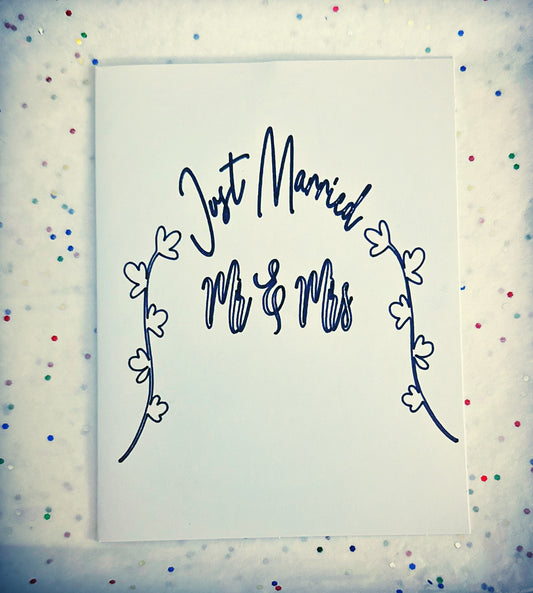 Just Married
Mr & Mrs